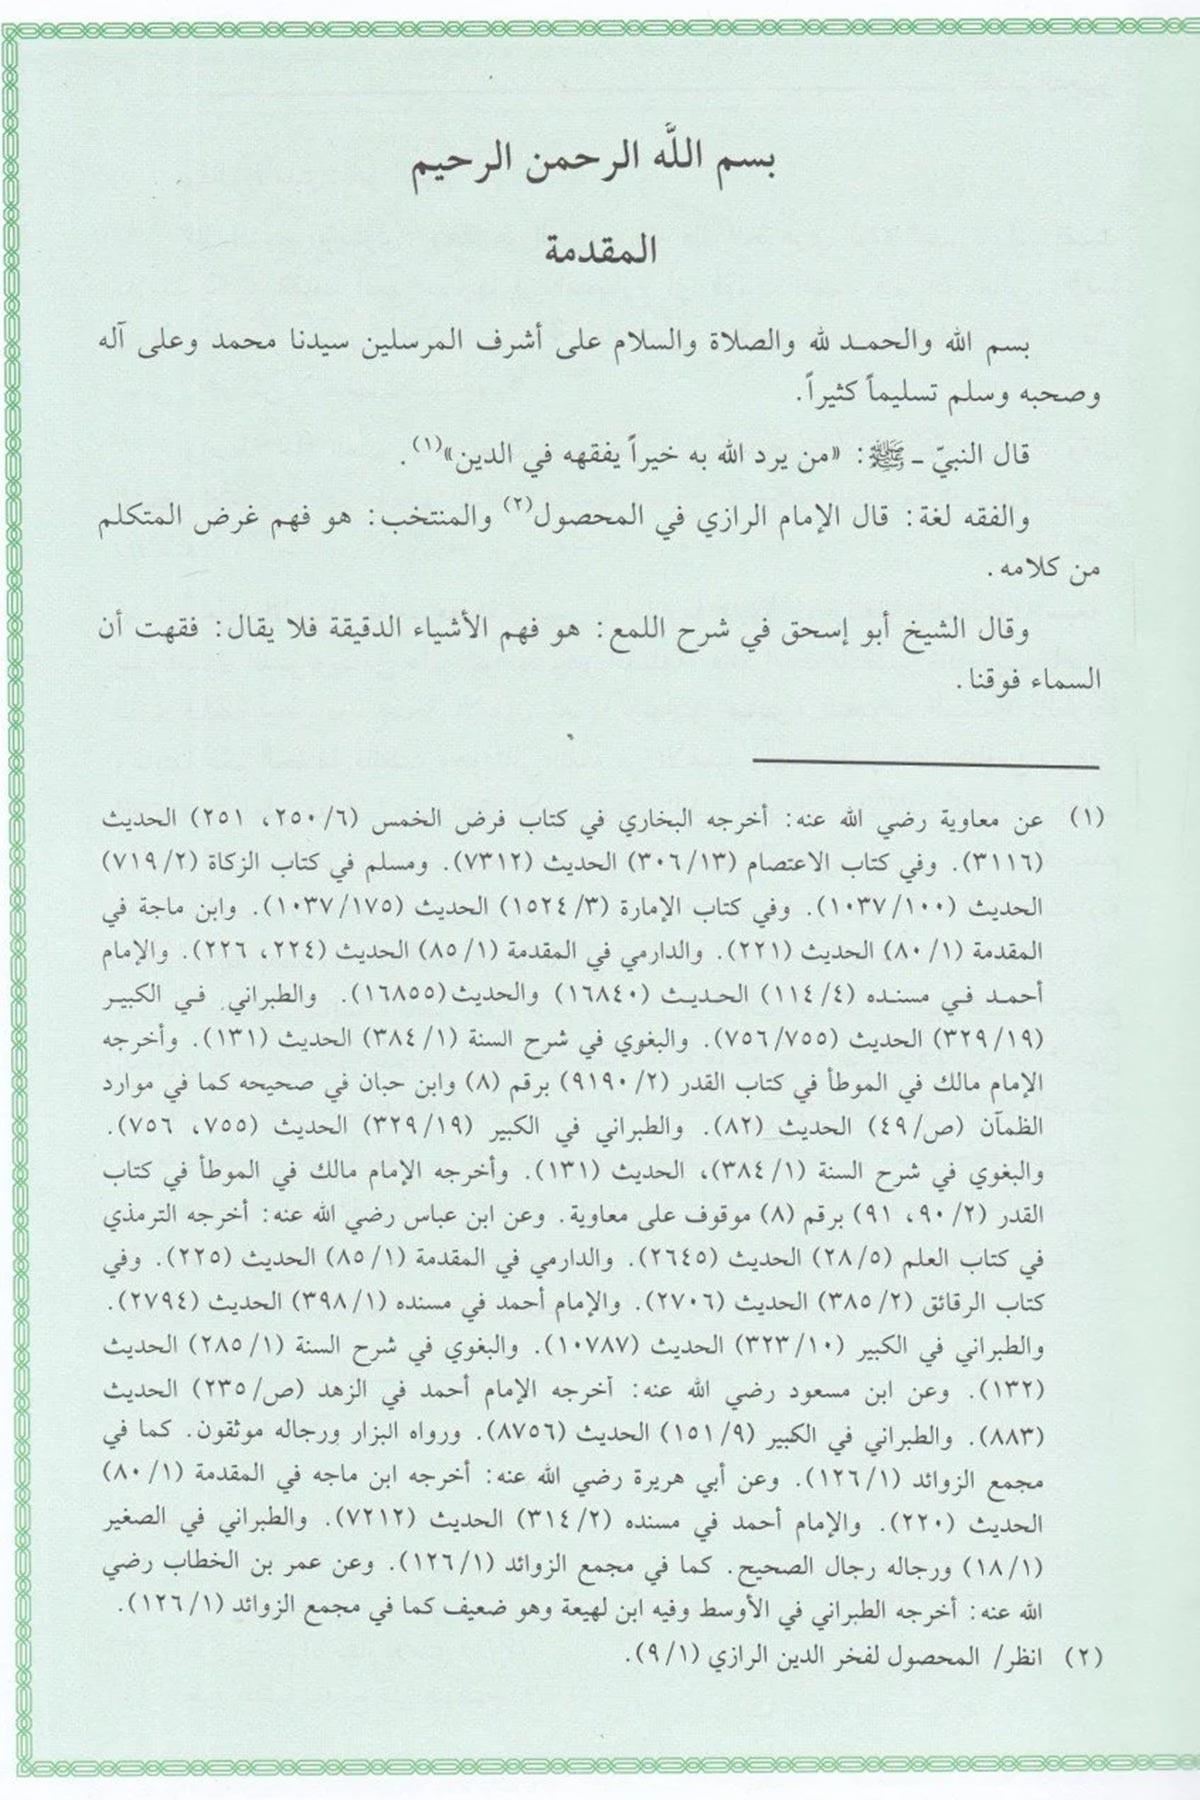 بسم اللَّه الرحمن الرحيم
المقدمة
بسم الله والحمـد لله والصلاة والسلام على أشرف المرسلين سيدنا محمد وعلى آله
وصحبه وسلم تسليماً كثيراً.
قال النبيّ ـ ﷺ: «من يرد الله به خيراً يفقهه في الدين»(١).
والفقه لغة: قال الإمام الرازي في المحصول(٢) والمنتخب: هو فهم غرض المتكلم
من كلامه.
وقال الشيخ أبو إسحق في شرح اللمع: هو فهم الأشياء الدقيقة فلا يقال: فقهت أن
السماء فوقنا.
(١) عن معاوية رضي الله عنه: أخرجه البخاري في كتاب فرض الخمس (٢٥٠/٦، ٢٥١) الحديث
(٣١١٦). وفي كتاب الاعتصام (٣٠٦/١٣) الحديث (٧٣١٢). ومسلم في كتاب الزكاة (٧١٩/٢)
الحديث (١٠٣٧/١٠٠). وفي كتاب الإمارة (١٥٢٤/٣) الحديث (١٠٣٧/١٧٥). وابن ماجة في
المقدمة (٨٠/١) الحديث (٢٢١). والدارمي في المقدمة (٨٥/١) الحديث (٢٢٤، ٢٢٦). والإمام
أحمـد فـي مسنـده (١١٤/٤) الحـديـث (١٦٨٤٠) والحديث(١٦٨٥٥). والطبراني فـي الكبيـر
(٣٢٩/١٩) الحديث (٧٥٦/٧٥٥). والبغوي في شرح السنة (٣٨٤/١) الحديث (١٣١). وأخرجه
الإمام مالك في الموطأ في كتاب القدر (٩١٩٠/٢) برقم (٨) وابن حبان في صحيحه كما في موارد
الظمآن (ص/٤٩) الحديث (٨٢). والطبراني في الكبير (٣٢٩/١٩) الحديث (٧٥٥، ٧٥٦).
والبغوي في شرح السنة (٣٨٤/١)، الحديث (١٣١). وأخرجه الإمام مالك في الموطأ في كتاب
القدر (٩٠/٢، ٩١) برقم (٨) موقوف على معاوية. وعن ابن عباس رضي الله عنه: أخرجه الترمذي
في كتاب العلم (٢٨/٥) الحديث (٢٦٤٥). والدارمي في المقدمة (٨٥/١) الحديث (٢٢٥). وفي
كتاب الرقائق (٣٨٥/٢) الحديث (٢٧٠٦). والإمام أحمد في مسنده (٣٩٨/١) الحديث (٢٧٩٤).
والطبراني في الكبير (٣٢٣/١٠) الحديث (١٠٧٨٧). والبغوي في شرح السنة (٢٨٥/١) الحديث
(١٣٢). وعن ابن مسعود رضي الله عنه: أخرجه الإمام أحمد في الزهد (ص/٢٣٥) الحديث
(٨٨٣). والطبراني في الكبير (١٥١/٩) الحديث (٨٧٥٦). ورواه البزار ورجاله موثقون. كما في
مجمع الزوائد (١٢٦/١). وعن أبي هريرة رضي الله عنه: أخرجه ابن ماجه في المقدمة (٨٠/١)
الحديث (٢٢٠). والإمام أحمد في مسنده (٣١٤/٢) الحديث (٧٢١٢). والطبراني في الصغير
(١٨/١) ورجاله رجال الصحيح. كما في مجمع الزوائد (١٢٦/١). وعن عمر بن الخطاب رضي
الله عنه: أخرجه الطبراني في الأوسط وفيه ابن لهيعة وهو ضعيف كما في مجمع الزوائد (١٢٦/١).
(٢) انظر/ المحصول لفخر الدين الرازي (٩/١).